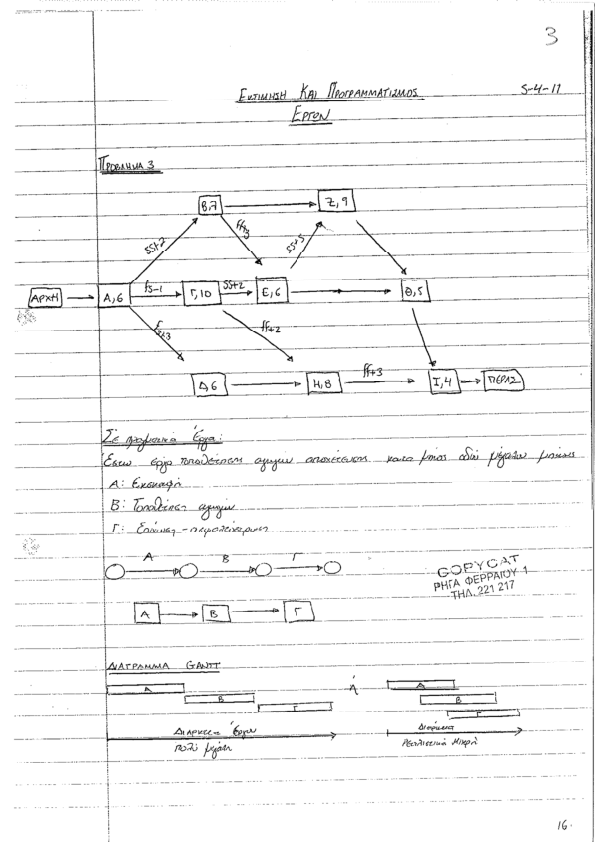 3
Εκτιμηση Και Προγραμματισμος 5-4-17
Εργων
Προβλημα 3
Β,7 Ζ,9
SS+2 ff+3 SS+5
ΑΡΧΗ Α,6 fS-1 Γ,10 SS+2 Ε,6 Θ,5
ff+2
Δ,6 Η,8 ff+3 Ι,4 ΠΕΡΑΣ
Σε πραγματικά Έργα:
Έστω έργο τοποθέτησης αγωγών αποχέτευσης κατά μήκος οδού μεγάλου μήκους
Α: Εκσκαφή
Β: Τοποθέτηση αγωγών
Γ: Επίχωση -
Α Β Γ
Α Β Γ
COPYCAT
ΡΗΓΑ ΦΕΡΡΑΙΟΥ 1
ΤΗΛ. 221 217
ΔΙΑΓΡΑΜΜΑ GANTT
Α ή Α
Β Β
Γ Γ
Διάρκεια Έργου Διάρκεια
πολύ μεγάλη Ρεαλιστικά Μικρή
16.